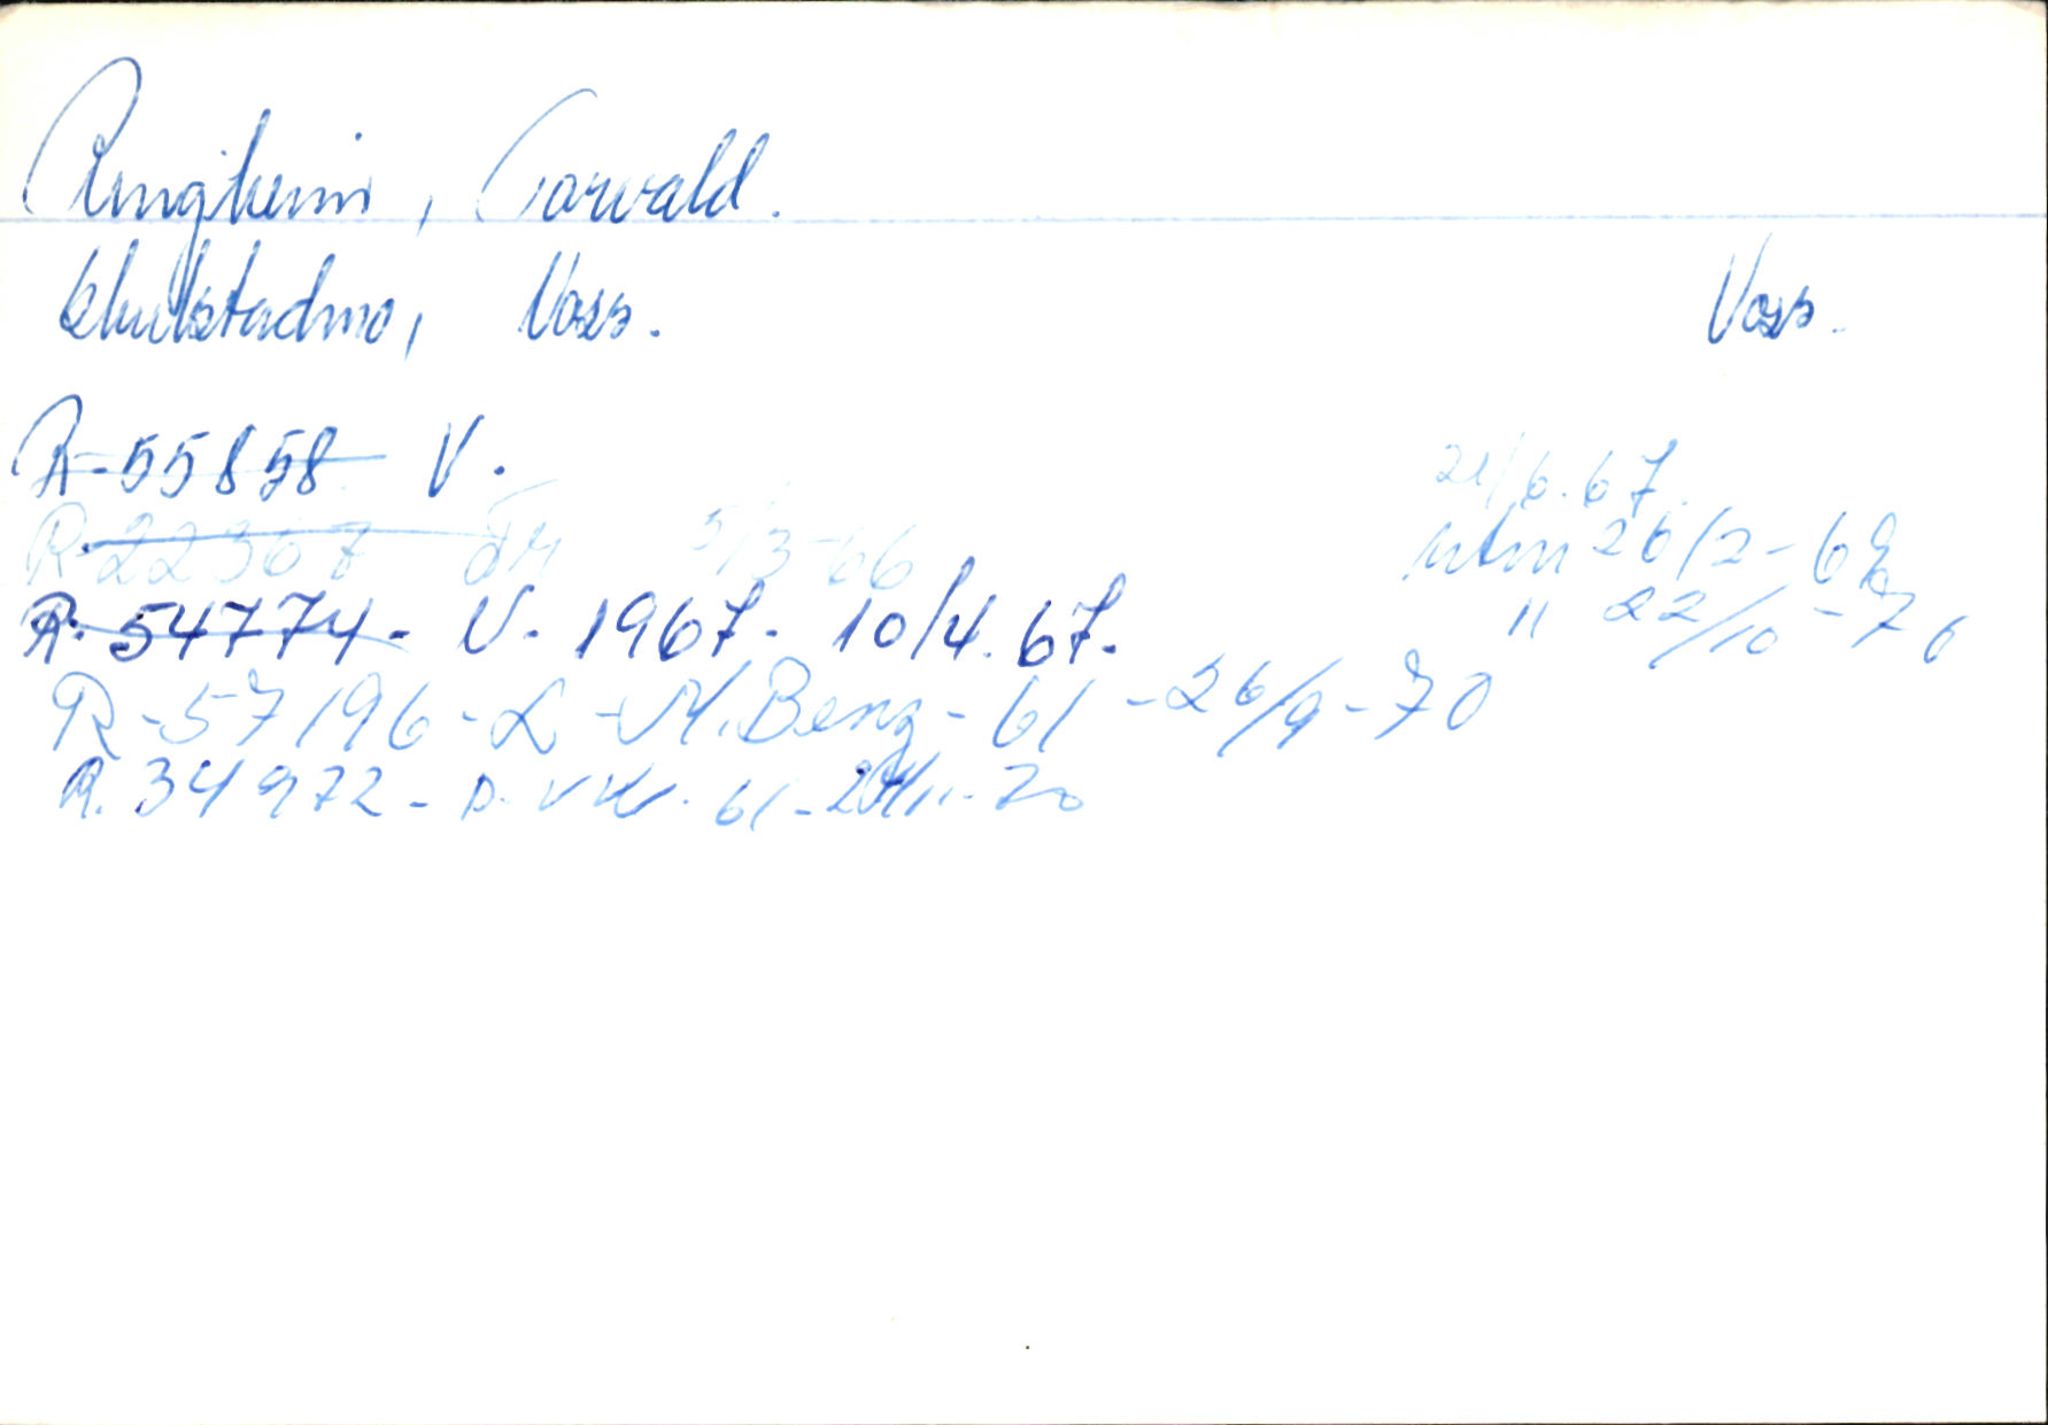 Ringheim, Torvald.
Voss. Voss.
R-55858 V. 21/6.67.
R.22367 5/3-66 utm 26/2-68
R. 54774- V. 1967. 10/4.67. " 22/10-76
R-57196-L-M.Benz-61-26/9-70
R. 34972- P. VW. 61- /11-70